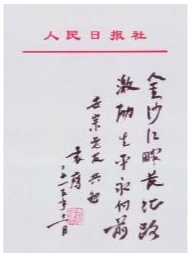 人民日报社
金沙江畔长征路
激励生平永向前
安宗老友共勉
袁鹰
二〇一五年十一月